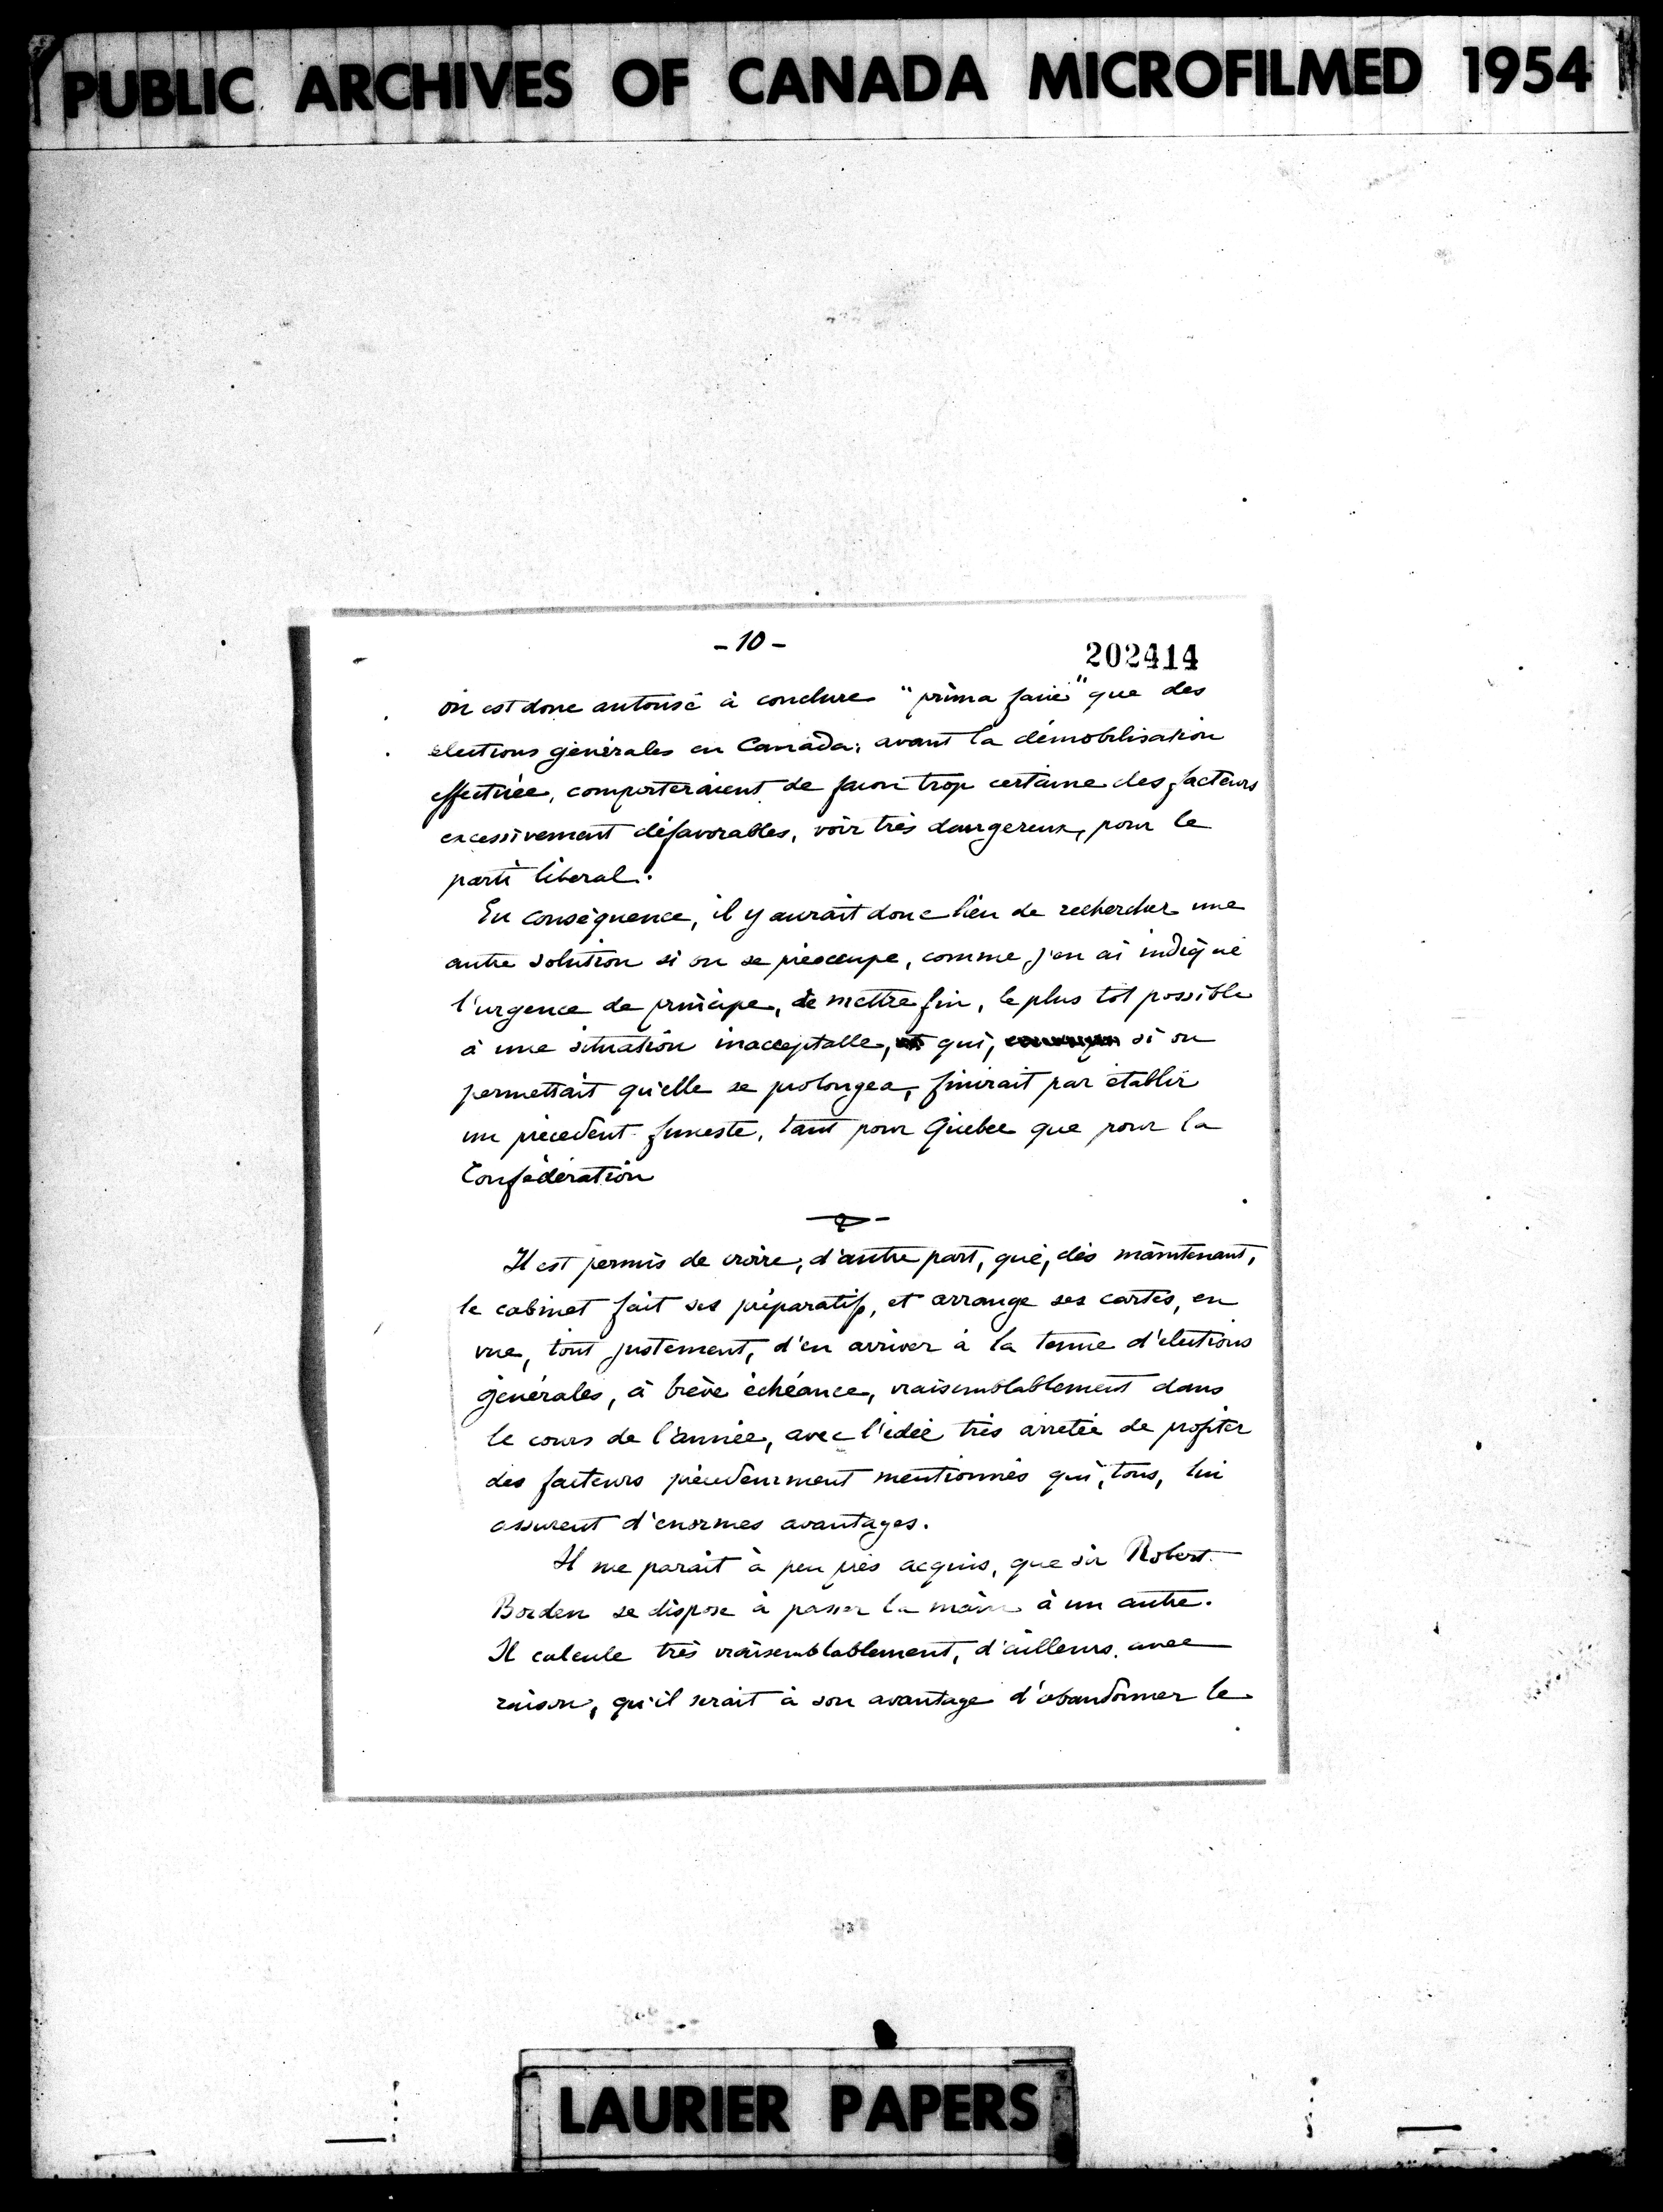 PUBLIC ARCHIVES OF CANADA MICROFILMED 1954
- 10 -
202414
on est donc autorisé à conclure "prima facie" que des
élections générales en Canada, avant la démobilisation
effectuée, comporteraient de façon trop certaine des facteurs
excessivement défavorables, voir très dangereux, pour le
parti libéral.
En conséquence, il y aurait donc lieu de rechercher une
autre solution si on se préoccupe, comme j'en ai indiqué
l'urgence de principe, de mettre fin, le plus tôt possible
à une situation inacceptable, qui, si on
permettait qu'elle se prolongea, finirait par établir
un précédent funeste, tant pour Québec que pour la
Confédération
Il est permis de croire, d'autre part, que, dès maintenant,
le cabinet fait ses préparatifs, et arrange ses cartes, en
vue, tout justement, d'en arriver à la tenue d'élections
générales, à brève échéance, vraisemblablement dans
le cours de l'année, avec l'idée très arrêtée de profiter
des facteurs précédemment mentionnés qui, tous, lui
assurent d'énormes avantages.
Il me parait à peu près acquis, que sir Robert
Borden se dispose à passer la main à un autre.
Il calcule très vraisemblablement, d'ailleurs avec
raison, qu'il serait à son avantage d'abandonner le
LAURIER PAPERS